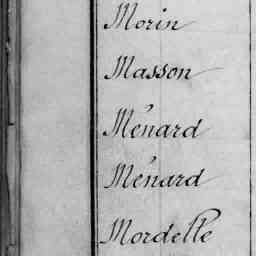 Morin
Masson
Ménard
Ménard
Mordelle